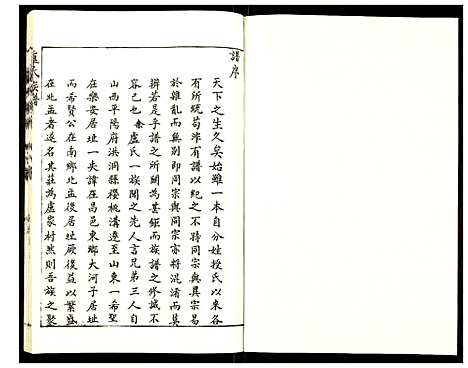 譜序
天下之生久矣始雖一本自分姓授氏以來各
有所統苟非有譜以紀之不特同宗與異宗易
於雜亂而莫別即同宗與同宗亦將混淆而莫
辨若是乎譜之所關為甚鉅而族譜之修誠不
容己也余盧氏一族聞之先人言兄弟三人自
山西平陽府洪洞縣櫻桃溝遷至山東一希聖
在樂安居址一失諱在昌邑東鄉大河子居址
而希賢公在南鄉北孟居址厥後益以繁盛
在北孟者遂名其莊為盧家村然則吾族之聚
盧氏族譜